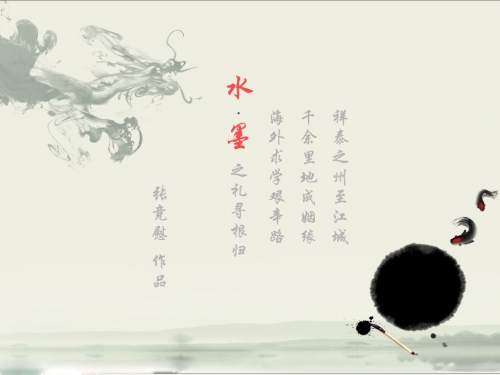 祥泰之州至江城
千余里地成姻缘
海外求学艰辛路
水·墨之礼寻根归
张竟慰 作品